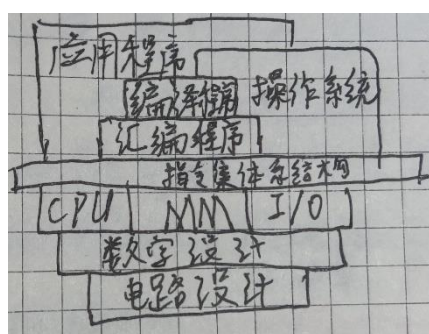 应用程序
编译程序 操作系统
汇编程序
指令集体系结构
CPU MM I/O
数字设计
电路设计